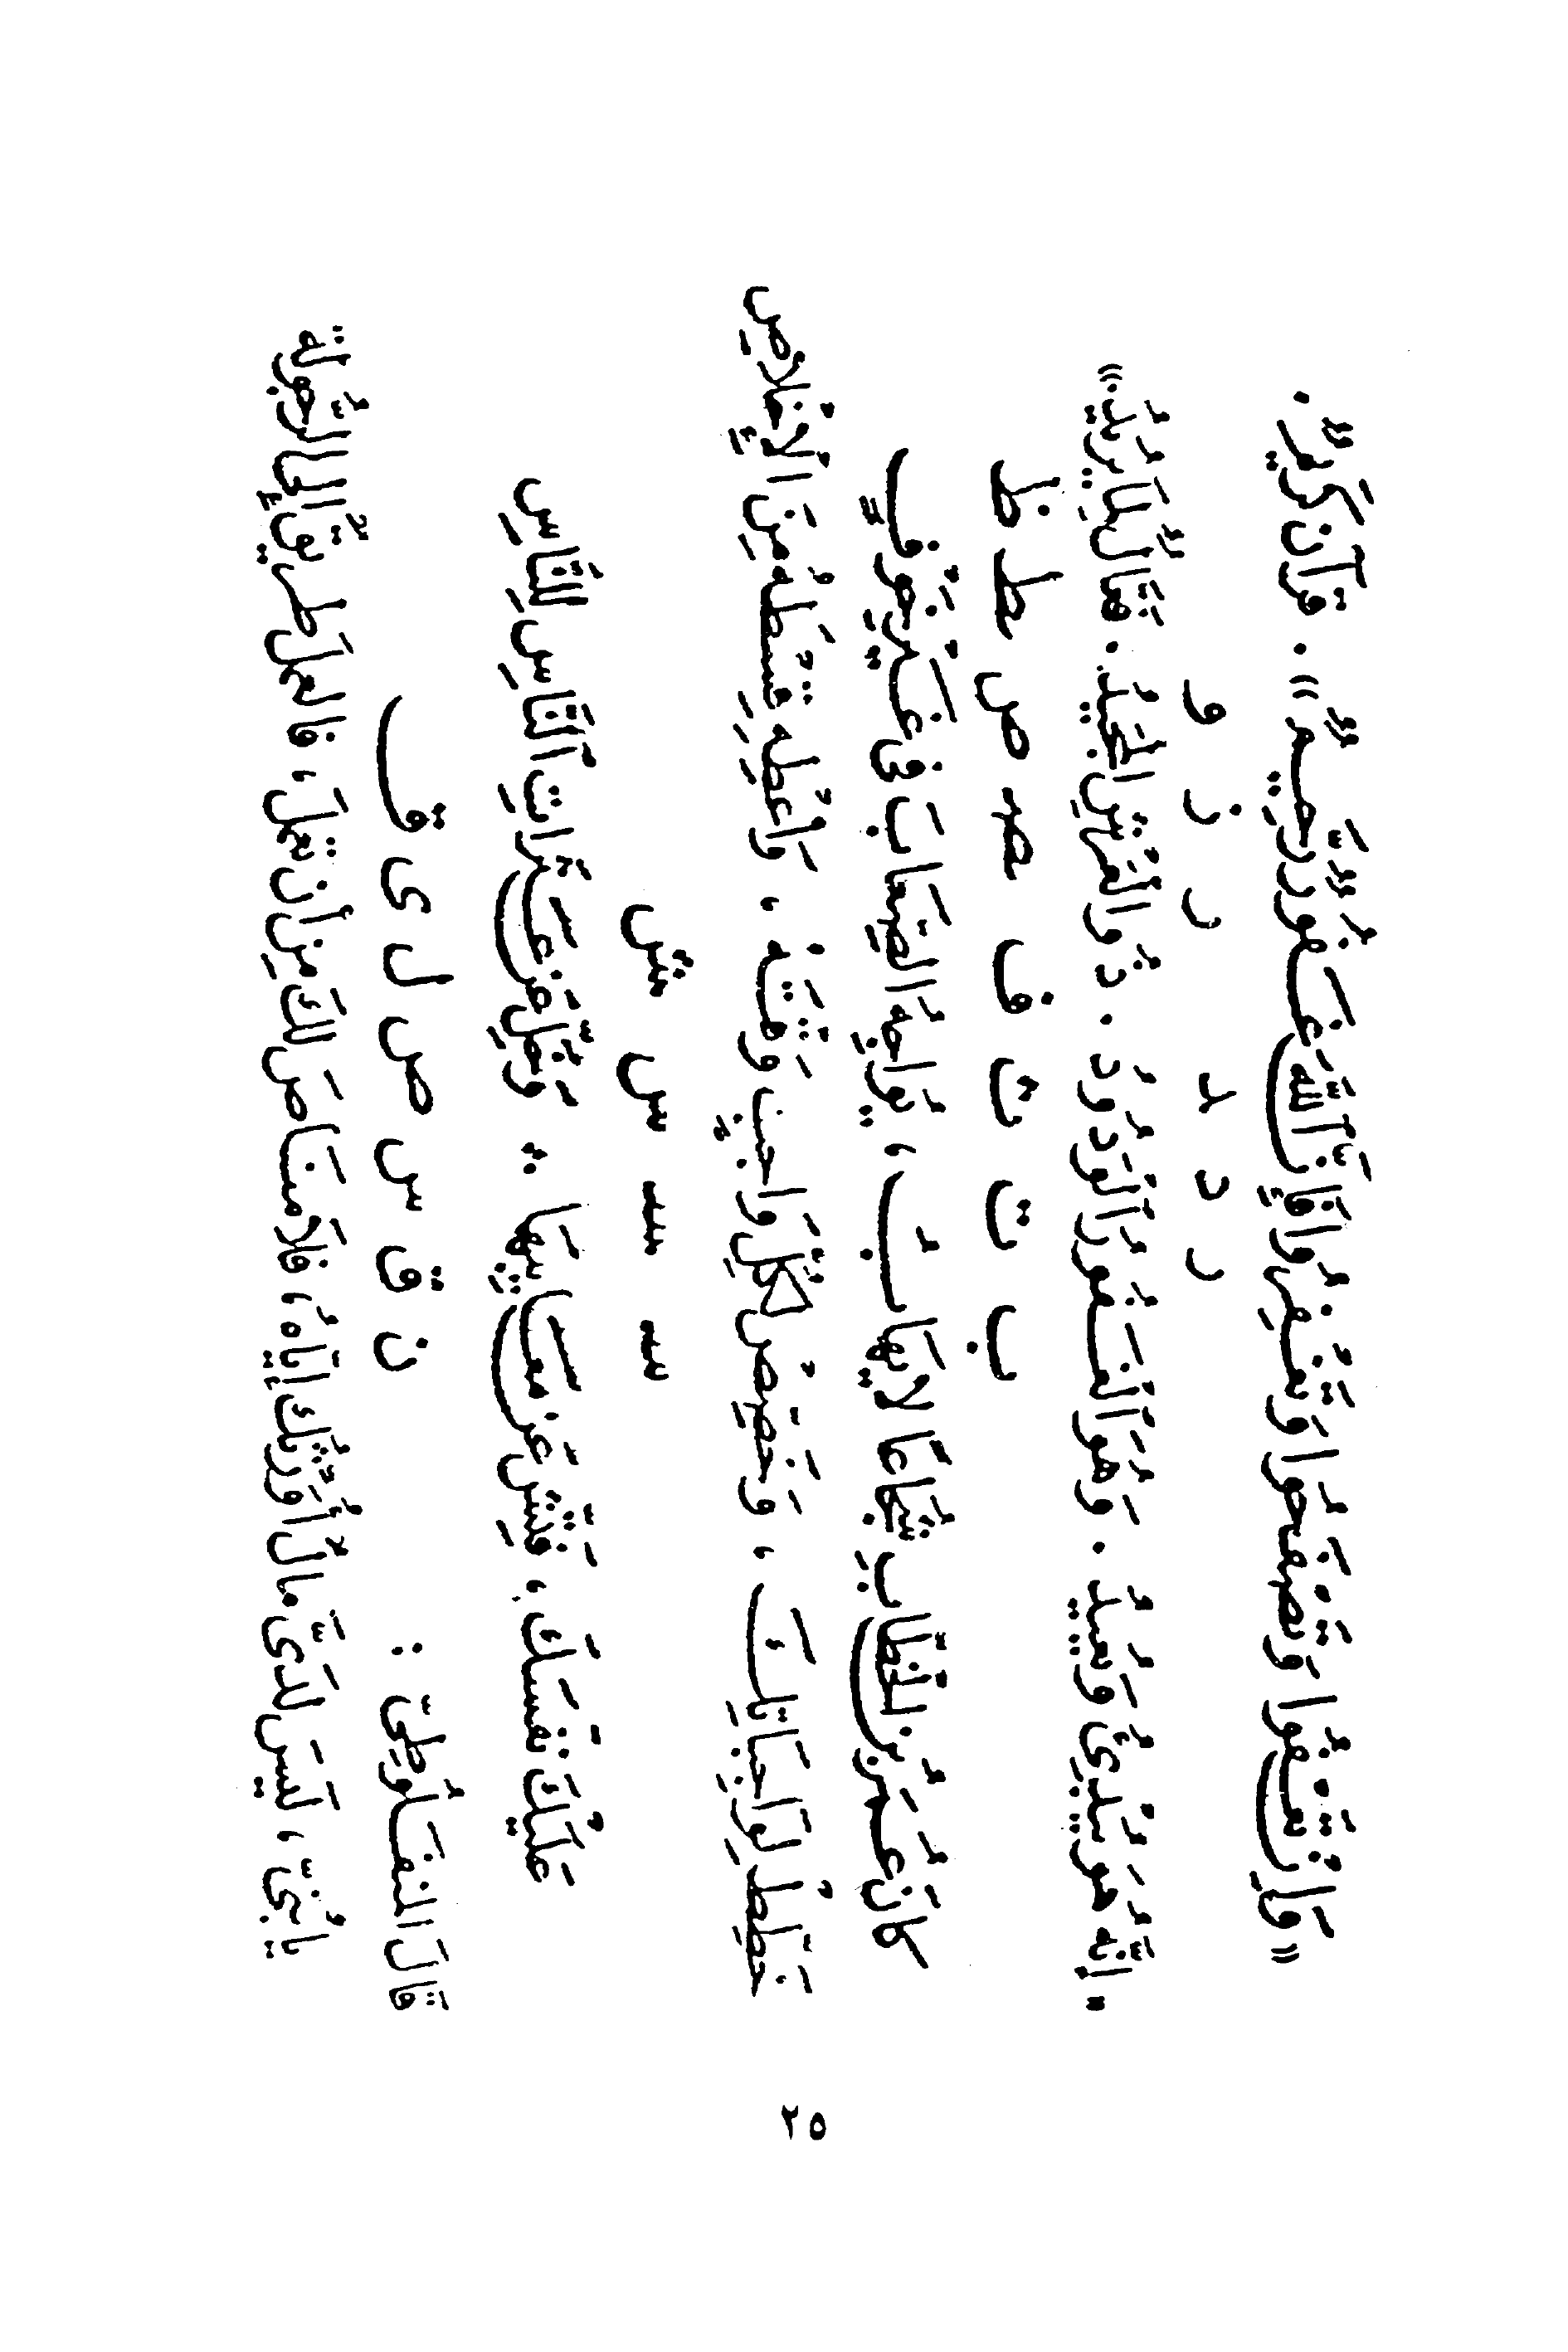 «وَإِنْ تَعْفُوا وَتَصْفَحُوا وَتَغْفِرُوا فَإِنَّ ٱللَّهَ غَفُورٌ رَّحِيمٌ». قرآن كَرِيمٌ.
ر د ـد ر ز و
«إنَّهُ هُوَ يُبْدِئُ وَيُعِيدُ. وَهُوَ ٱلْغَفُورُ ٱلْوَدُودُ. ذُو ٱلْعَرْشِ الْمَجِيدُ. فَعَّالٌ لِمَا يُرِيدُ.»
ب ت ث ف صـ ص ط ظ
كانَ عُمَرُ بن الخطَّابِ شُجَاعًا لا يَهَابُ، يُوَاجِهُ الصِّعَابَ في غَيْرِ خَوْفٍ
خَطِّطْ لِوَاجِبَاتِكَ، وَخَصِّصْ لِكُلِّ وَاجِبٍ وَقْتَهُ، وَأَعْطِهِ قِسْطَهُ مِنَ الْإِخْلَاصِ
سـ سـ س ش
عَلَيْكَ نَفْسَكَ، فَتِّشْ عَنْ مَعَايِبِهَا .. وَخَلِّ عَنْ عَثَرَاتِ ٱلنَّاسِ لِلنَّاسِ
قَالَ المنفَلُوطِيّ : ن ق س ص ل ى ق
يا بُنَيّ، لَيسَ لدَيَّ مالٌ أُوَرِّثُك إيّاهُ، فلا مَنَاصَ لكَ مِن أن تعملَ، فالعملَ طريقٌ إلى الرُّجولة
٢٥